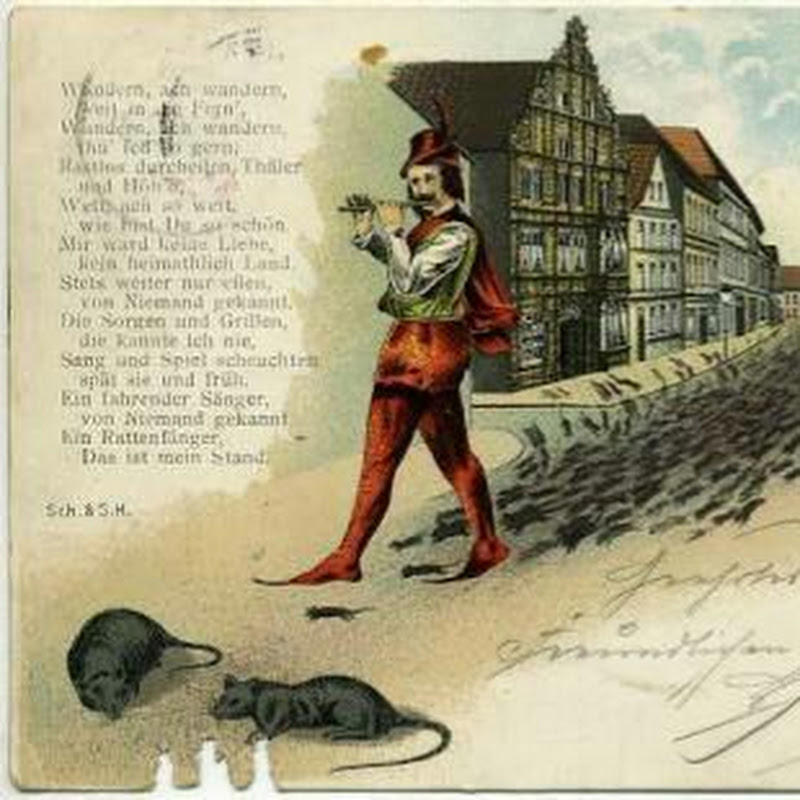 Wandern, ach wandern,
weit in die Fern',
Wandern, ach wandern,
thu' ich so gern.
Rastlos durcheilen, Thäler
und Höh'n,
Welt, ach so weit,
wie bist Du so schön.
Mir ward keine Liebe,
kein heimathlich Land.
Stets weiter nur eilen,
von Niemand gekannt.
Die Sorgen und Grillen,
die kannte ich nie,
Sang und Spiel scheuchten
spät sie und früh.
Ein fahrender Sänger,
von Niemand gekannt
Ein Rattenfänger,
Das ist mein Stand.
Sch. & S.H.
freundlichen